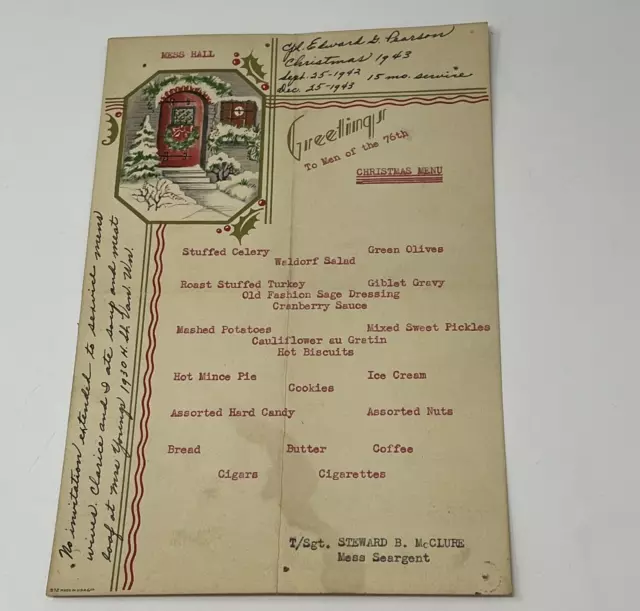 MESS HALL
Cpl. Edward G. Pearson
Christmas 1943
Sept. 25-1942
15 mo. service
Dec. 25-1943
Greetings
To Men of the 76th
CHRISTMAS MENU
Stuffed Celery Green Olives
Waldorf Salad
Roast Stuffed Turkey Giblet Gravy
Old Fashion Sage Dressing
Cranberry Sauce
Mashed Potatoes Mixed Sweet Pickles
Cauliflower au Gratin
Hot Biscuits
Hot Mince Pie Ice Cream
Cookies
Assorted Hard Candy Assorted Nuts
Bread Butter Coffee
Cigars Cigarettes
T/Sgt. STEWARD B. McCLURE
Mess Seargent
No invitation extended to service mens
wives. Clarice and I ate soup and meat
loaf at Mrs Youngs 1930 H. St. Van. Wn.